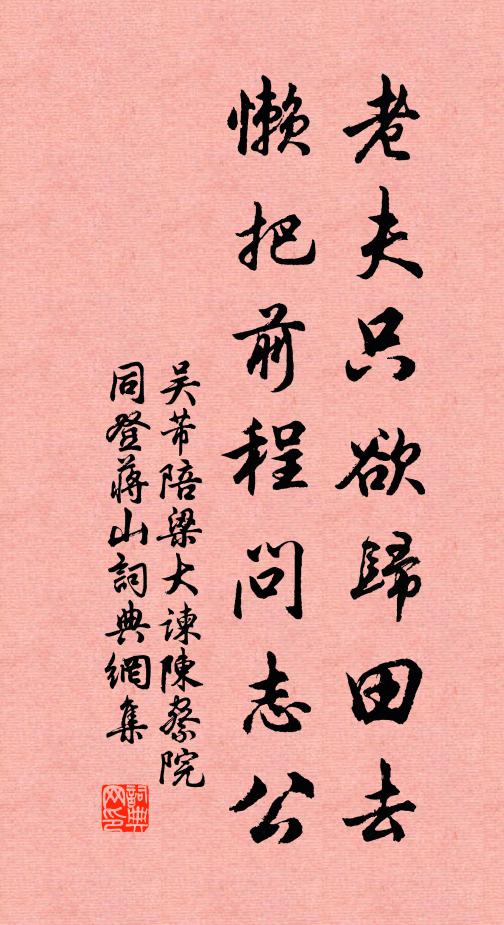 老夫只欲歸田去
懶把前程問志公
吴芾陪梁大諫陳察院
同登蔣山詞典網集
詞典網印